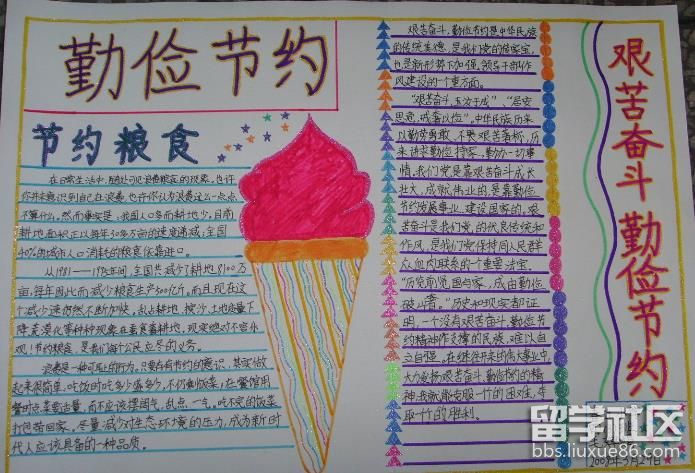 勤俭节约
节约粮食
在日常生活中,随处可见浪费粮食的现象。也许
你并未意识到自己在浪费,也许你认为浪费这么一点点
不算什么,然而事实是:我国人口多而耕地少,目前
耕地面积正以每年30多万亩的速度递减,全国
40%的城市人口消耗的粮食依靠进口。
从1981—1985年间,全国共减少了耕地万
亩,每年因此而减少粮食生产500亿斤,而且现在这
个减少速仍然不断加快,乱占耕地、挖沙、土地质量下
降、荒漠化等种种现象在蚕食着耕地,现实绝对不容乐
观!节约粮食,是我们每个公民应尽的义务。
浪费是一种可耻的行为,只要存有节约的意识,其实做
起来很简单:吃饭时吃多少盛多少,不扔剩饭菜,在餐馆用
餐时点菜要适量,而不应该摆阔气,乱点一气,吃不完的饭菜
打包带回家。尽量减少对生态环境的压力,成为新时
代人应该具备的一种品质。
艰苦奋斗,勤俭节约是中华民族
的传统美德,是我们党的传家宝,
也是新形势下加强领导干部作
风建设的一个重方面。
“艰苦奋斗,玉汝于成”、“居安
思危,戒奢以俭”。中华民族历来
以勤劳勇敢、不畏艰苦著称,历
来讲求勤俭持家、勤俭办一切事
情,我们党是靠艰苦奋斗成长
壮大、成就伟业的,是靠勤俭
节约发展事业、建设国家的,艰
苦奋斗是我们党的优良传统和
作风,是我们党保持同人民群
众血肉联系的一个重要法宝。
“历览前贤国与家,成由勤俭
破由奢。”历史和现实都证
明,一个没有艰苦奋斗、勤俭节
约精神作支撑的民族,难以自
立自强。在继往开来的伟大事业中,
大力发扬艰苦奋斗、勤俭节约的精
神,我就能克服一切的困难,夺
取一切的胜利。
艰苦奋斗 勤俭节约
留学社区
bbs.liuxue86.com